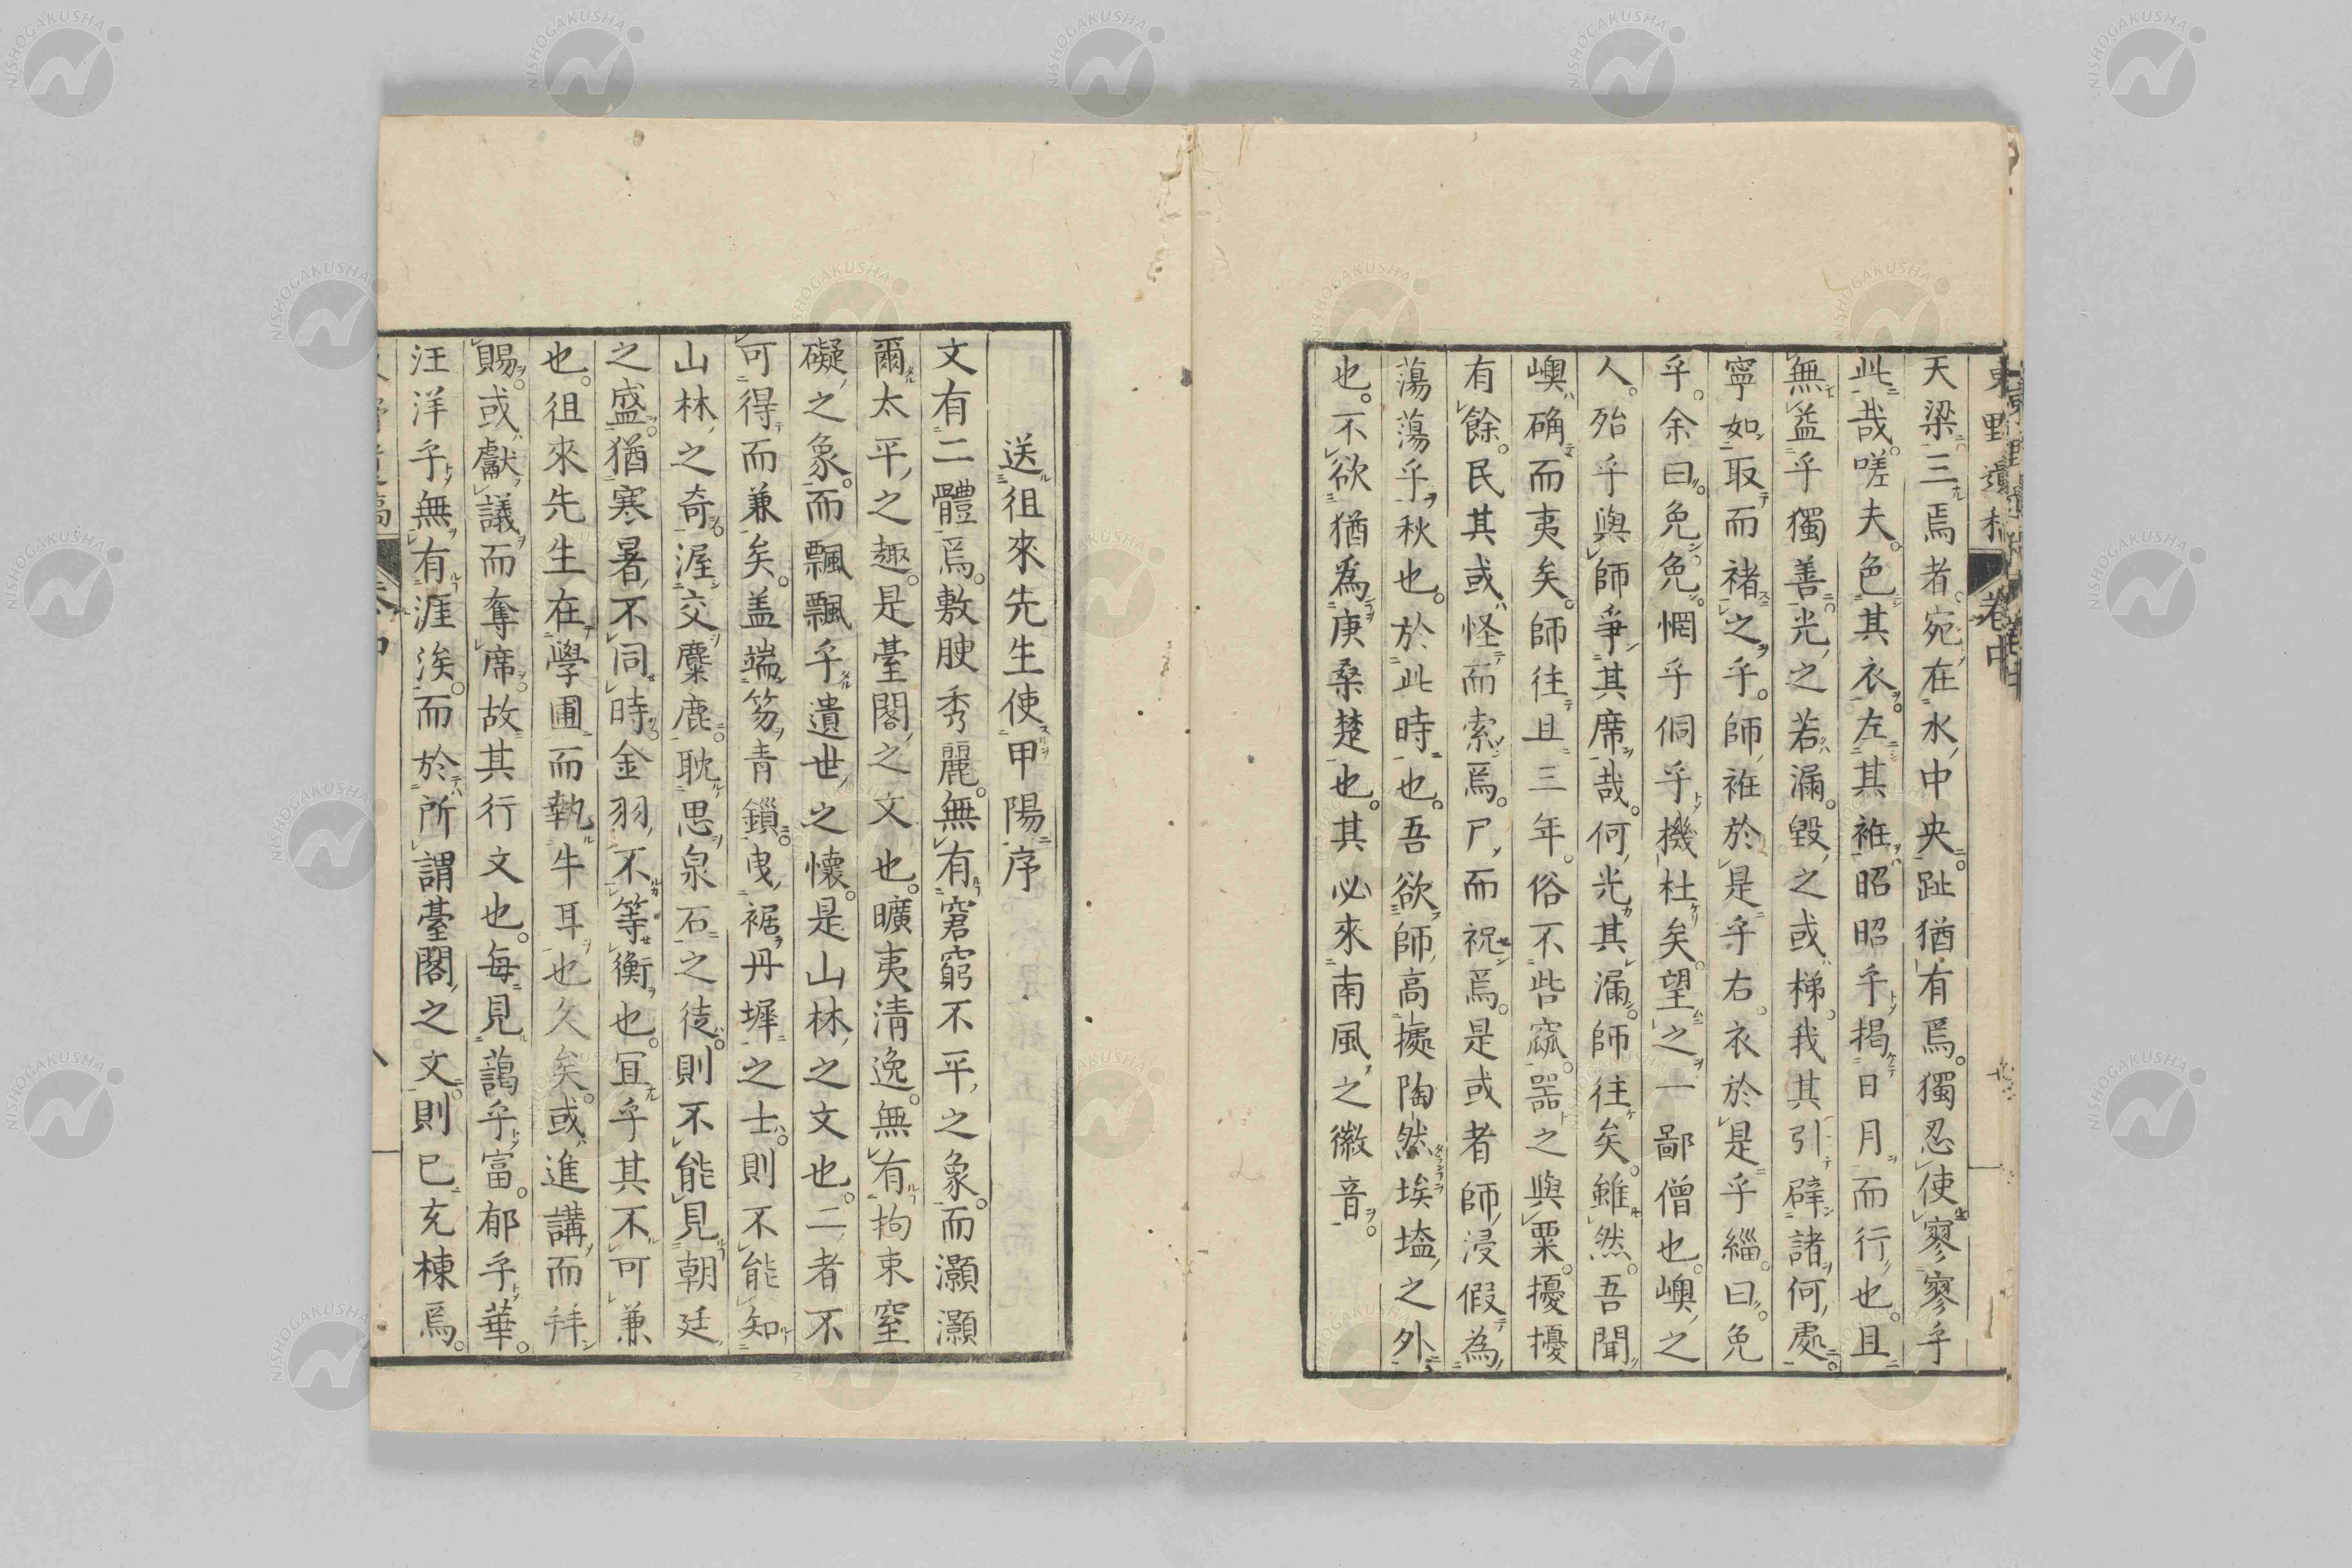 東野遺稿 卷中
天梁三焉者宛在水中央趾猶有焉獨忍使寥寥乎
此哉嗟夫色其衣左其袵昭昭乎揭日月而行也且
無益乎獨善光之若漏毀之或梯我其引辟諸何處
寧如取而褚之乎師袵於是乎右衣於是乎緇曰免
乎余曰免免惘乎侗乎機杜矣望之一鄙僧也嶼之
人殆乎與師爭其席哉何光其漏師往矣雖然吾聞
嶼确而夷矣師往且三年俗不呰窳噐之與粟擾擾
有餘民其或怪而索焉尸而祝焉是或者師浸假為
蕩蕩乎秋也於此時也吾欲師高擡陶然埃壒之外
也不欲猶爲庚桑楚也其必來南風之徽音
送徂來先生使甲陽序
文有二體焉敷腴秀麗無有窘窮不平之象而灝灝
爾太平之趣是臺閣之文也曠夷清逸無有拘束窒
礙之象而飄飄乎遺世之懷是山林之文也二者不
可得而兼矣盖端笏青鎖曳裾丹墀之士則不能知
山林之奇渥交麋鹿耽思泉石之徒則不能見朝廷
之盛猶寒暑不同時金羽不等衡也冝乎其不可兼
也徂來先生在學圃而執牛耳也久矣或進講而拜
賜或獻議而奪席故其行文也每見藹乎富郁乎華
汪洋乎無有涯涘而於所謂臺閣之文則已充棟焉